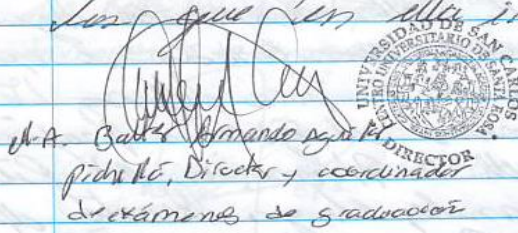 los que en ella in
UNIVERSIDAD DE SAN CARLOS
CENTRO UNIVERSITARIO DE SANTA ROSA
DIRECTOR
Armando
Director y coordinador
de exámenes de graduación